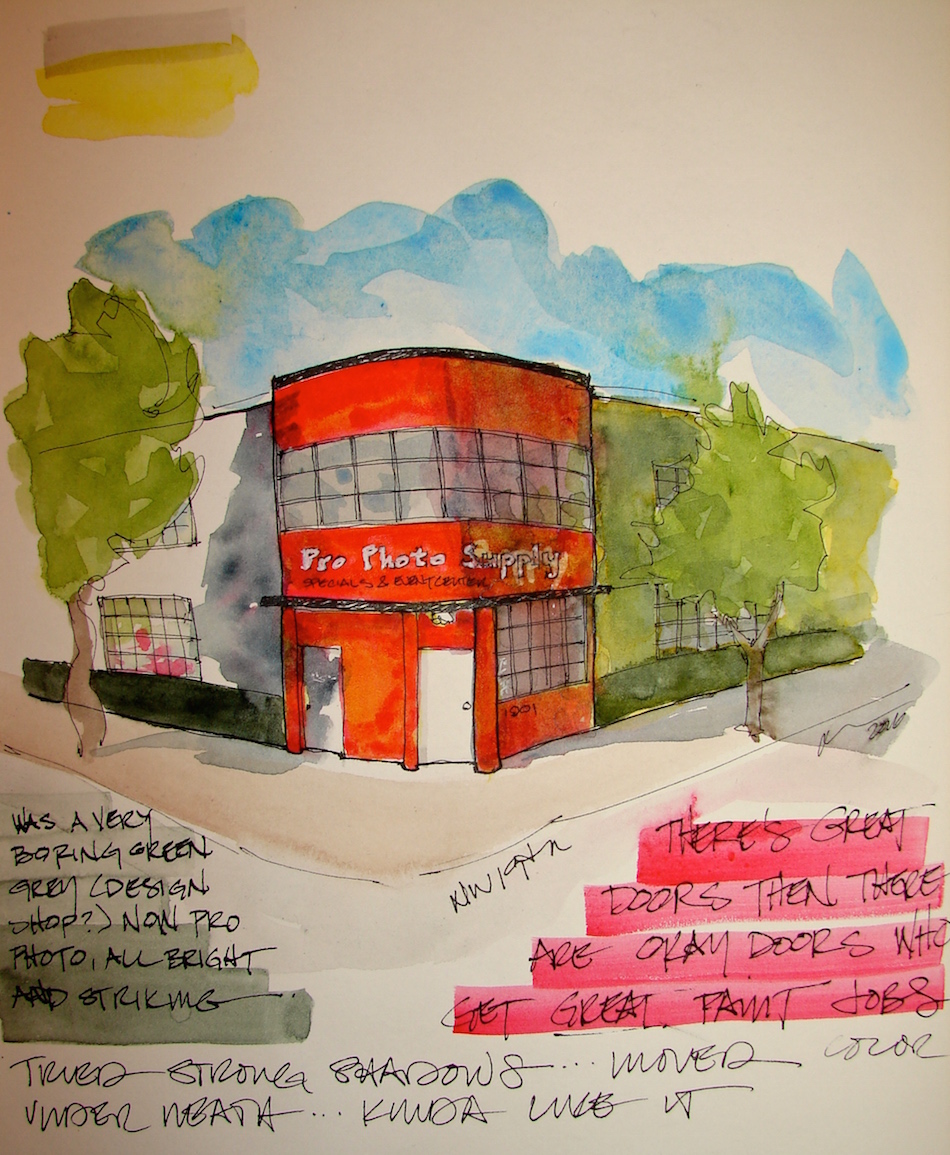 Pro Photo Supply
SPECIALS & EVENT CENTER
1801
NW 19th
WAS A VERY
BORING GREEN
GREY (DESIGN
SHOP?) NOW PRO
PHOTO, ALL BRIGHT
AND STRIKING
THERE'S GREAT
DOORS THEN THERE
ARE OKAY DOORS WHO
GET GREAT PAINT JOBS
TRIED STRONG SHADOWS... MOVED COLOR
UNDERNEATH... KINDA LIKE IT